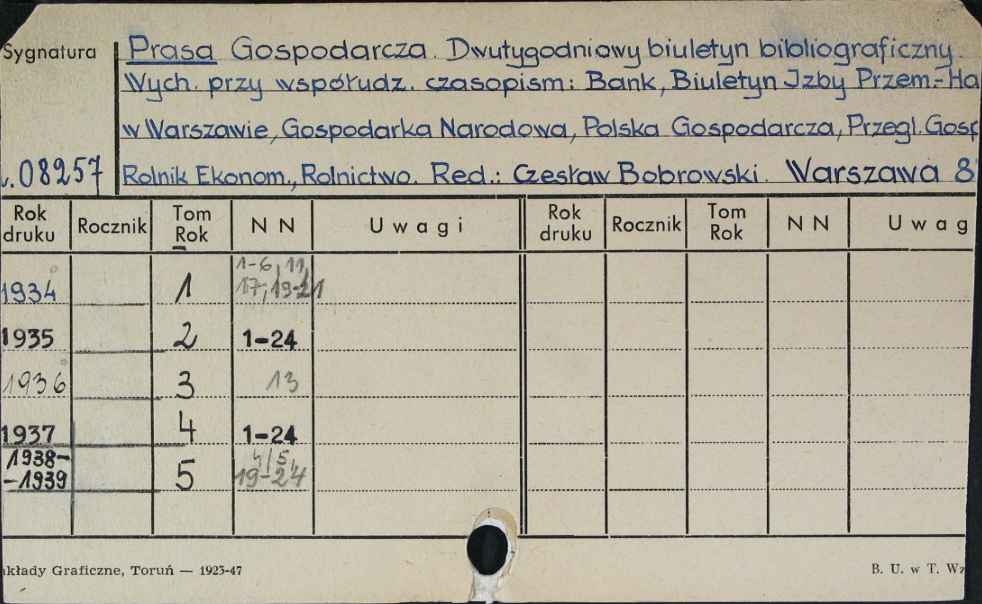 Sygnatura Prasa Gospodarcza. Dwutygodniowy biuletyn bibliograficzny.
Wych. przy współudz. czasopism: Bank, Biuletyn Izby Przem.-Ha
w Warszawie, Gospodarka Narodowa, Polska Gospodarcza, Przegl. Gosp
08257 Rolnik Ekonom., Rolnictwo. Red.: Czesław Bobrowski. Warszawa 8
Rok druku Rocznik Tom Rok NN Uwagi Rok druku Rocznik Tom Rok NN Uwag
1934 1 1-6, 11, 17, 19-21
1935 2 1-24
1936 3 13
1937 4 1-24
1938-1939 5 4/5, 19-24
kłady Graficzne, Toruń — 1923-47 B. U. w T. Wz